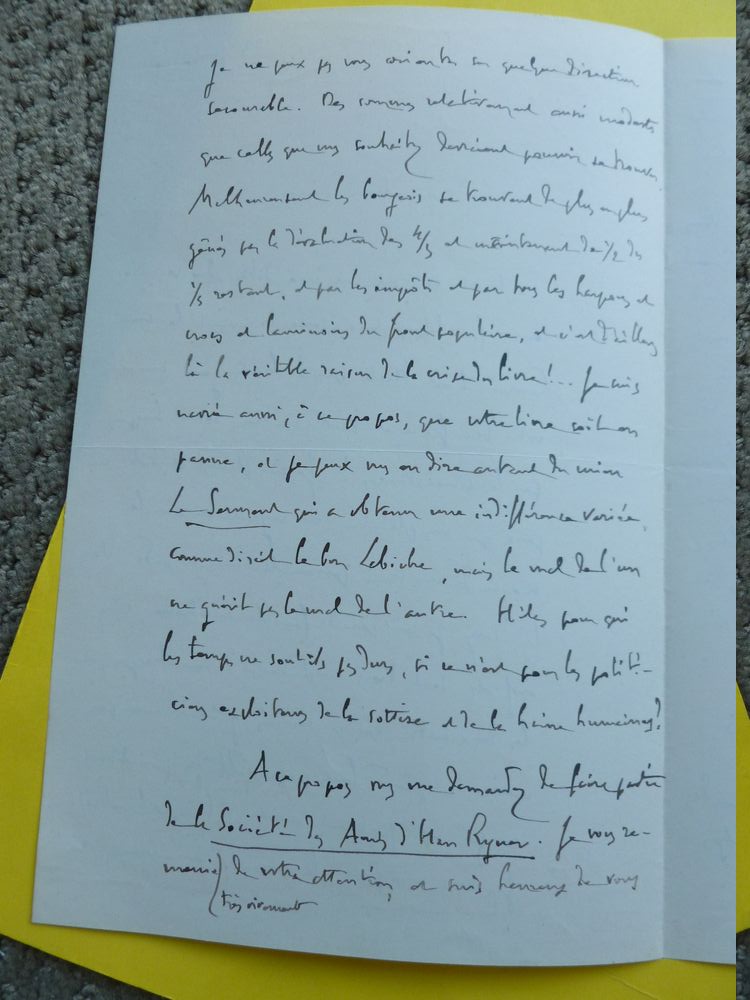 Je ne peux pas vous orienter en quelque direction
secourable. Des sommes relativement aussi modestes
que celles que vous souhaitez devraient pouvoir se trouver.
Malheureusement les bourgeois se trouvent de plus en plus
gênés par la dévaluation des 4/5 et maintenant de 1/2 du
1/5 restant, et par les impôts et par tous les harpons et
crocs et laminoirs du front populaire, et c'est d'ailleurs
là la véritable raison de la crise du livre !... Je suis
navré aussi, à ce propos, que votre livre soit en
panne, et je peux vous en dire autant du mien
Le Serment qui a obtenu une indifférence variée,
comme disait le bon Labiche, mais le mal de l'un
ne guérit pas le mal de l'autre. Hélas pour qui
les temps ne sont-ils pas durs, si ce n'est pour les politi-
ciens exploiteurs de la sottise et de la haine humaines ?
A ce propos vous me demandez de faire partie
de la Société des Amis d'Han Ryner. Je vous re-
mercie de votre attention, et suis heureux de vous
très vivement